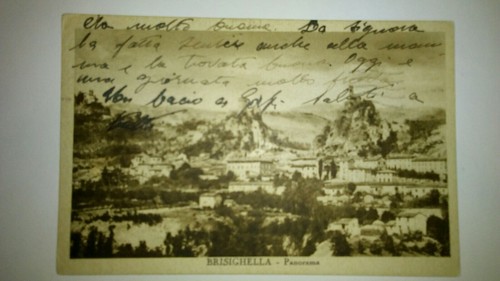 era molto buona. La Signora
la fatta sentire anche alla mam
ma e la trovata buona. Oggi e
una giornata molto
Un bacio a saluti a
BRISIGHELLA - Panorama